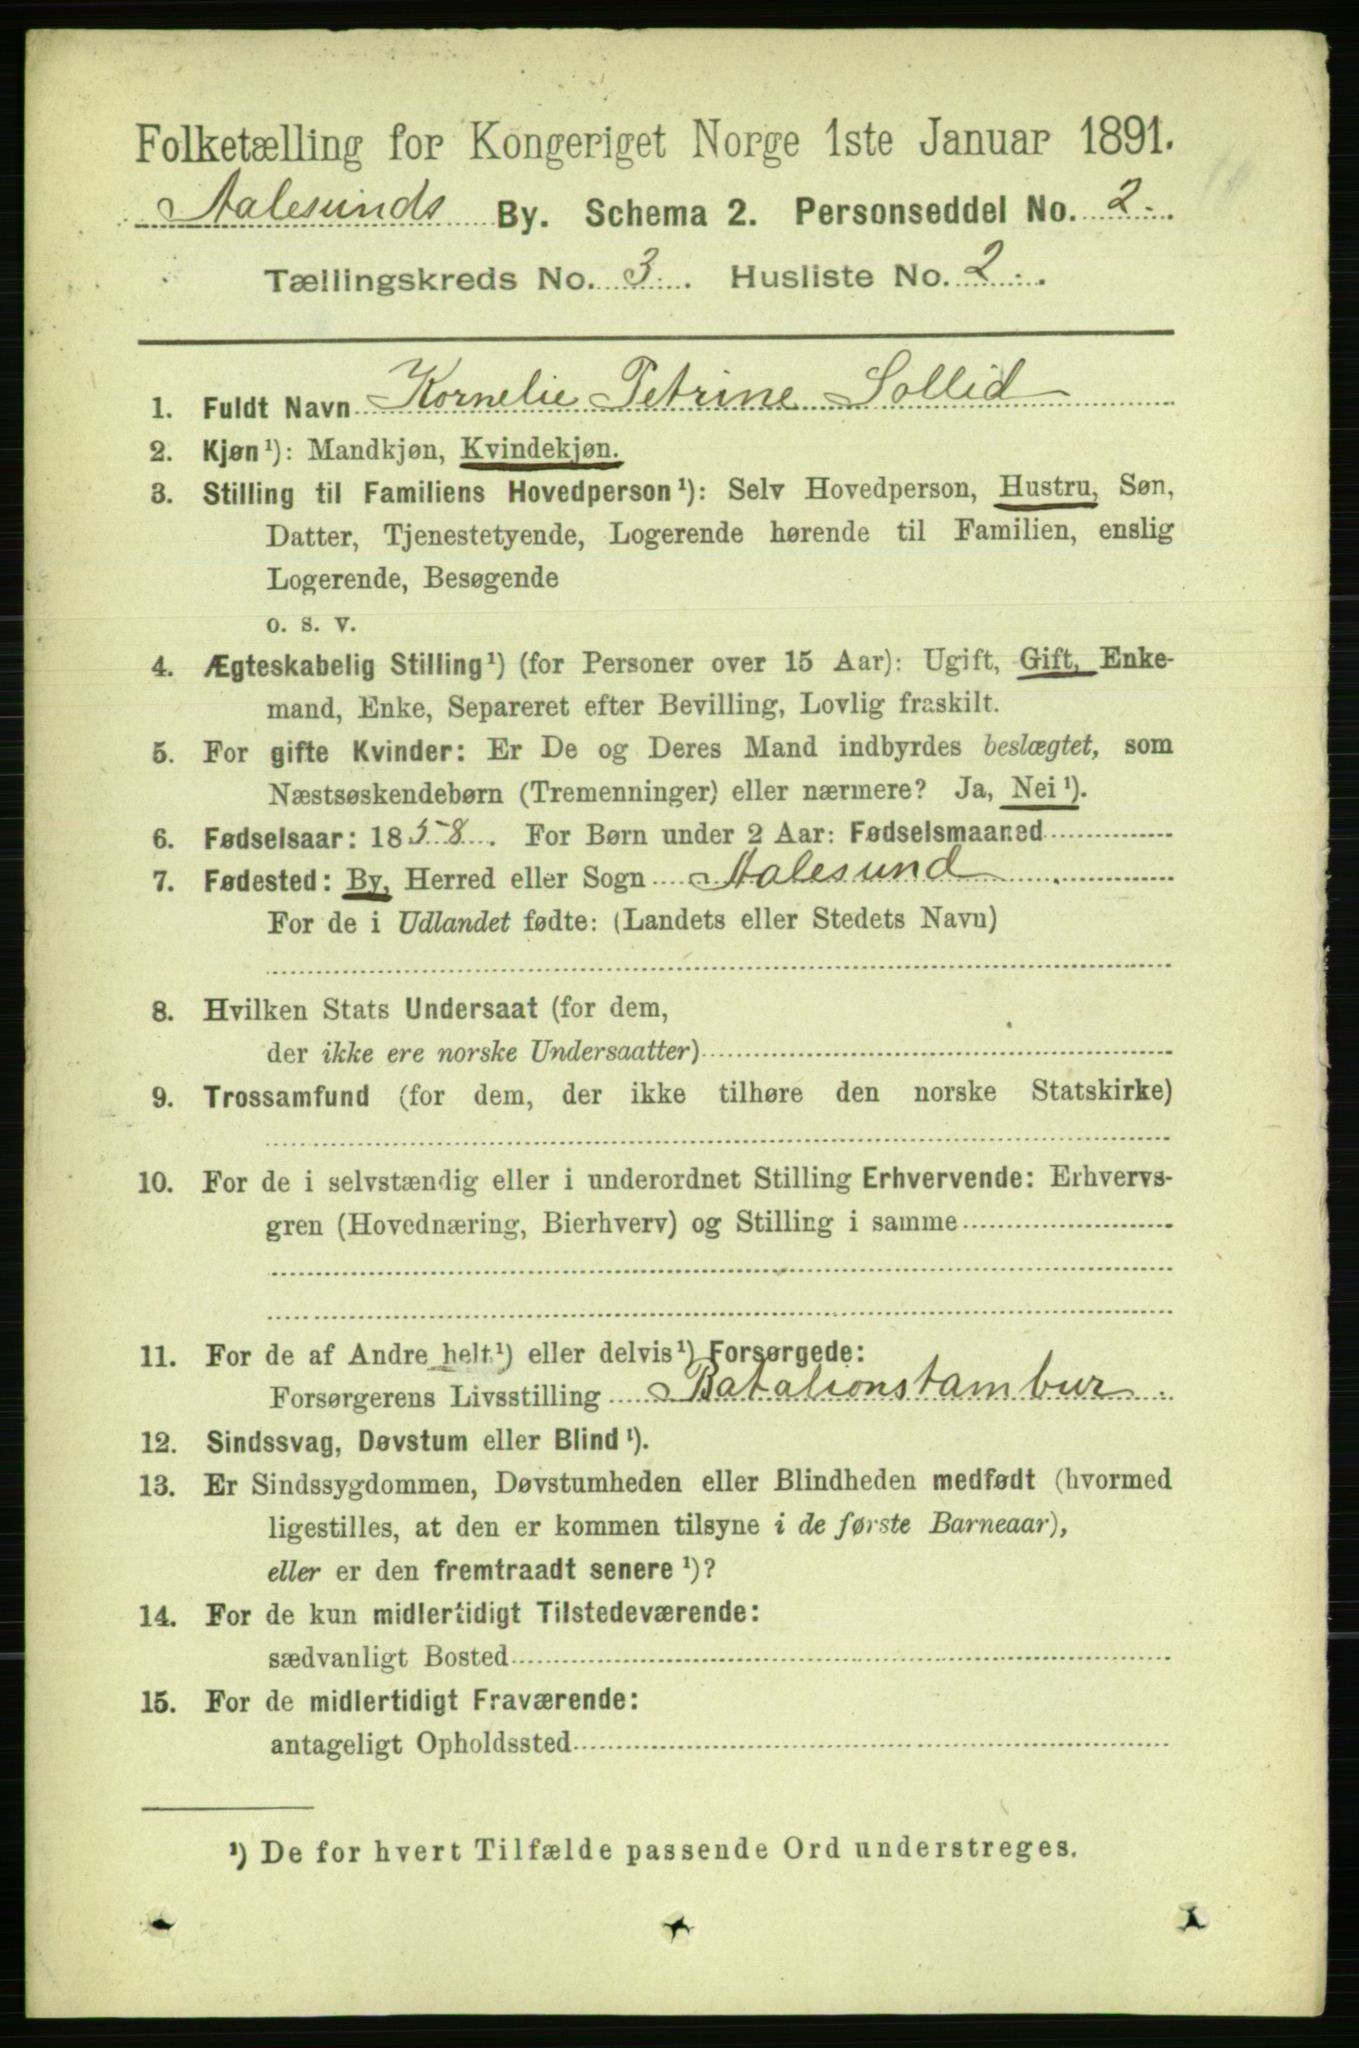 Folketælling for Kongeriget Norge 1ste Januar 1891.
Aalesunds By. Schema 2. Personseddel No. 2.
Tællingskreds No. 3. Husliste No. 2.
1. Fuldt Navn Kornelie Petrine Sollid
2. Kjøn¹): Mandkjøn, Kvindekjøn.
3. Stilling til Familiens Hovedperson¹): Selv Hovedperson, Hustru, Søn,
Datter, Tjenestetyende, Logerende hørende til Familien, enslig
Logerende, Besøgende
o. s. v.
4. Ægteskabelig Stilling¹) (for Personer over 15 Aar): Ugift, Gift, Enke-
mand, Enke, Separeret efter Bevilling, Lovlig fraskilt.
5. For gifte Kvinder: Er De og Deres Mand indbyrdes beslægtet, som
Næstsøskendebørn (Tremenninger) eller nærmere? Ja, Nei¹).
6. Fødselsaar: 1858. For Børn under 2 Aar: Fødselsmaaned
7. Fødested: By, Herred eller Sogn Aalesund
For de i Udlandet fødte: (Landets eller Stedets Navn)
8. Hvilken Stats Undersaat (for dem,
der ikke ere norske Undersaatter)
9. Trossamfund (for dem, der ikke tilhøre den norske Statskirke)
10. For de i selvstændig eller i underordnet Stilling Erhvervende: Erhvervs-
gren (Hovednæring, Bierhverv) og Stilling i samme
11. For de af Andre helt¹) eller delvis¹) Forsørgede:
Forsørgerens Livsstilling Batalionstambur.
12. Sindssvag, Døvstum eller Blind¹).
13. Er Sindssygdommen, Døvstumheden eller Blindheden medfødt (hvormed
ligestilles, at den er kommen tilsyne i de første Barneaar),
eller er den fremtraadt senere¹)?
14. For de kun midlertidigt Tilstedeværende:
sædvanligt Bosted
15. For de midlertidigt Fraværende:
antageligt Opholdssted
¹) De for hvert Tilfælde passende Ord understreges.